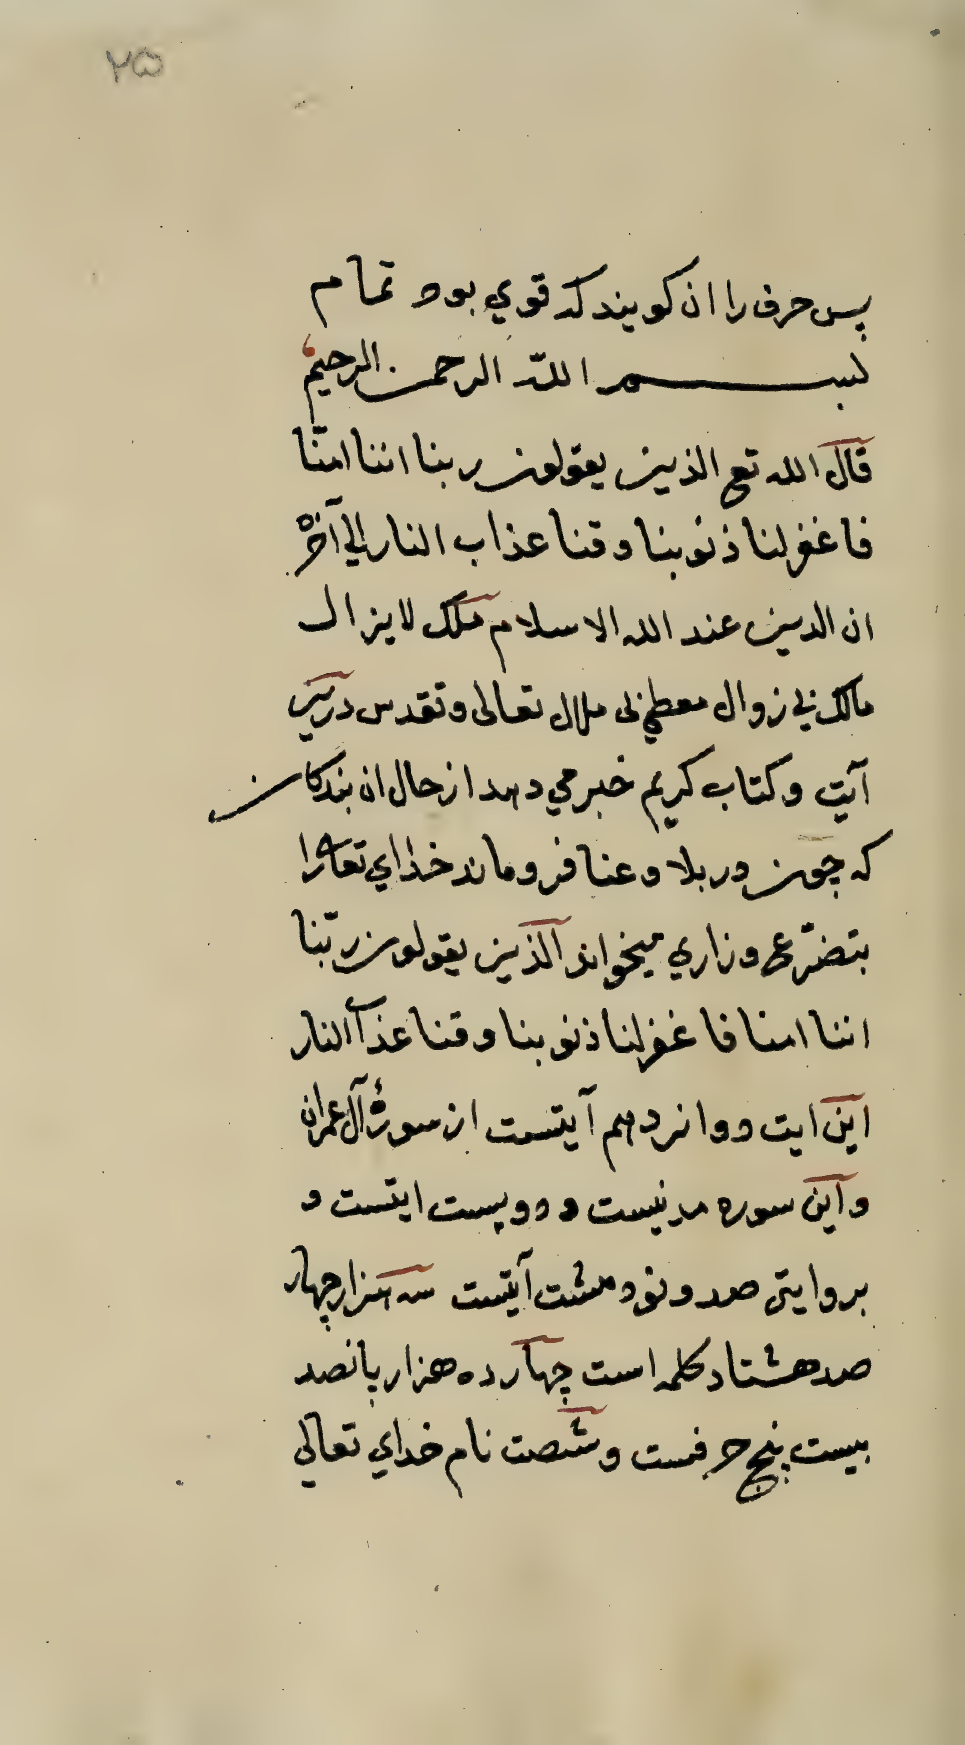 ۲۵
پس حرف را ان کویند که قوي بود تمام
بسم الله الرحمن الرحیم
قال الله تع الذین یقولون ربنا اننا امنّا
فاغفرلنا ذنوبنا وقنا عذاب النار الي آخره
ان الدین عند الله الاسلام ملک لا یزال
مالک بي زوال معطي بی ملال تعالی و تقدس درین
آیت و کتاب کریم خبر مي دهد از حال ان بندکان
که چون در بلا و عنا فرو ماند خذاي تعا را
بتضرّع و زاري میخواند الذین یقولون ربّنا
اننا امنا فاغفرلنا ذنوبنا وقنا عذاب النار
این ایت دوانزدهم آیتست از سورهٔ آل عمران
و این سوره مدنیست و دویست ایتست و
بروایتی صد و نود هشت آیتست سه هزار چهار
صد هشتاد کلمه است چهارده هزار پانصد
بیست پنج حرفست و شصت نام خداي تعالي